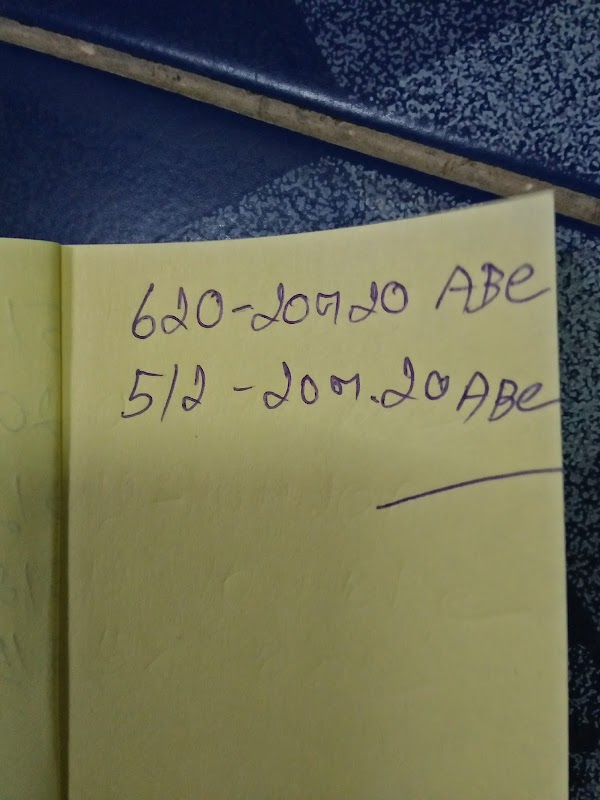 620-20ต20 ABC
512-20ต.20 ABC